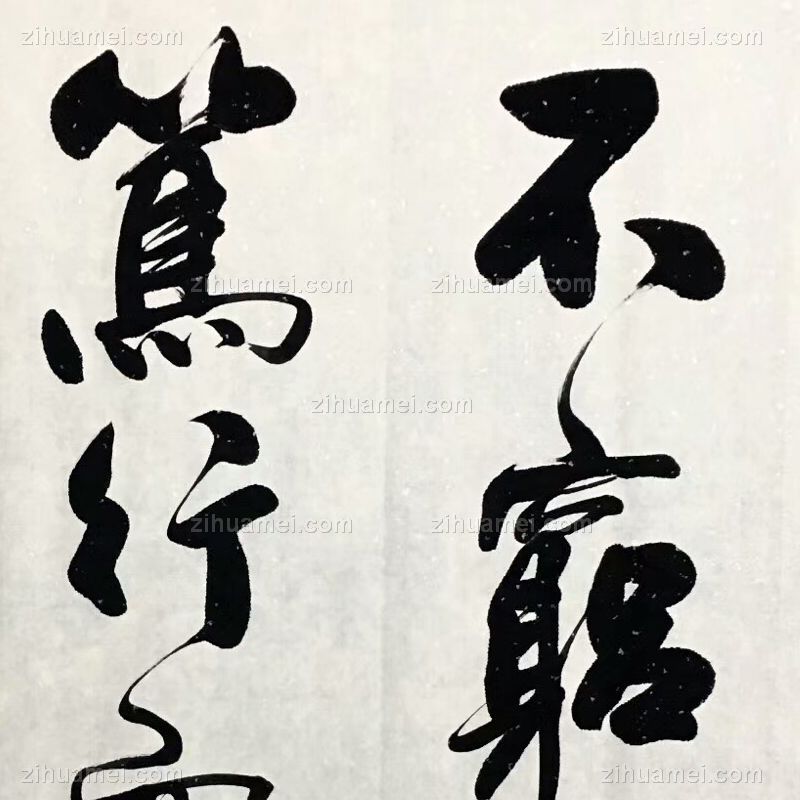 不窮
篤行而
zihuamei.com
zihuamei.com
zihuamei.com
zihuamei.com
zihuamei.com
zihuamei.com
zihuamei.com
zihuamei.com
zihuamei.com